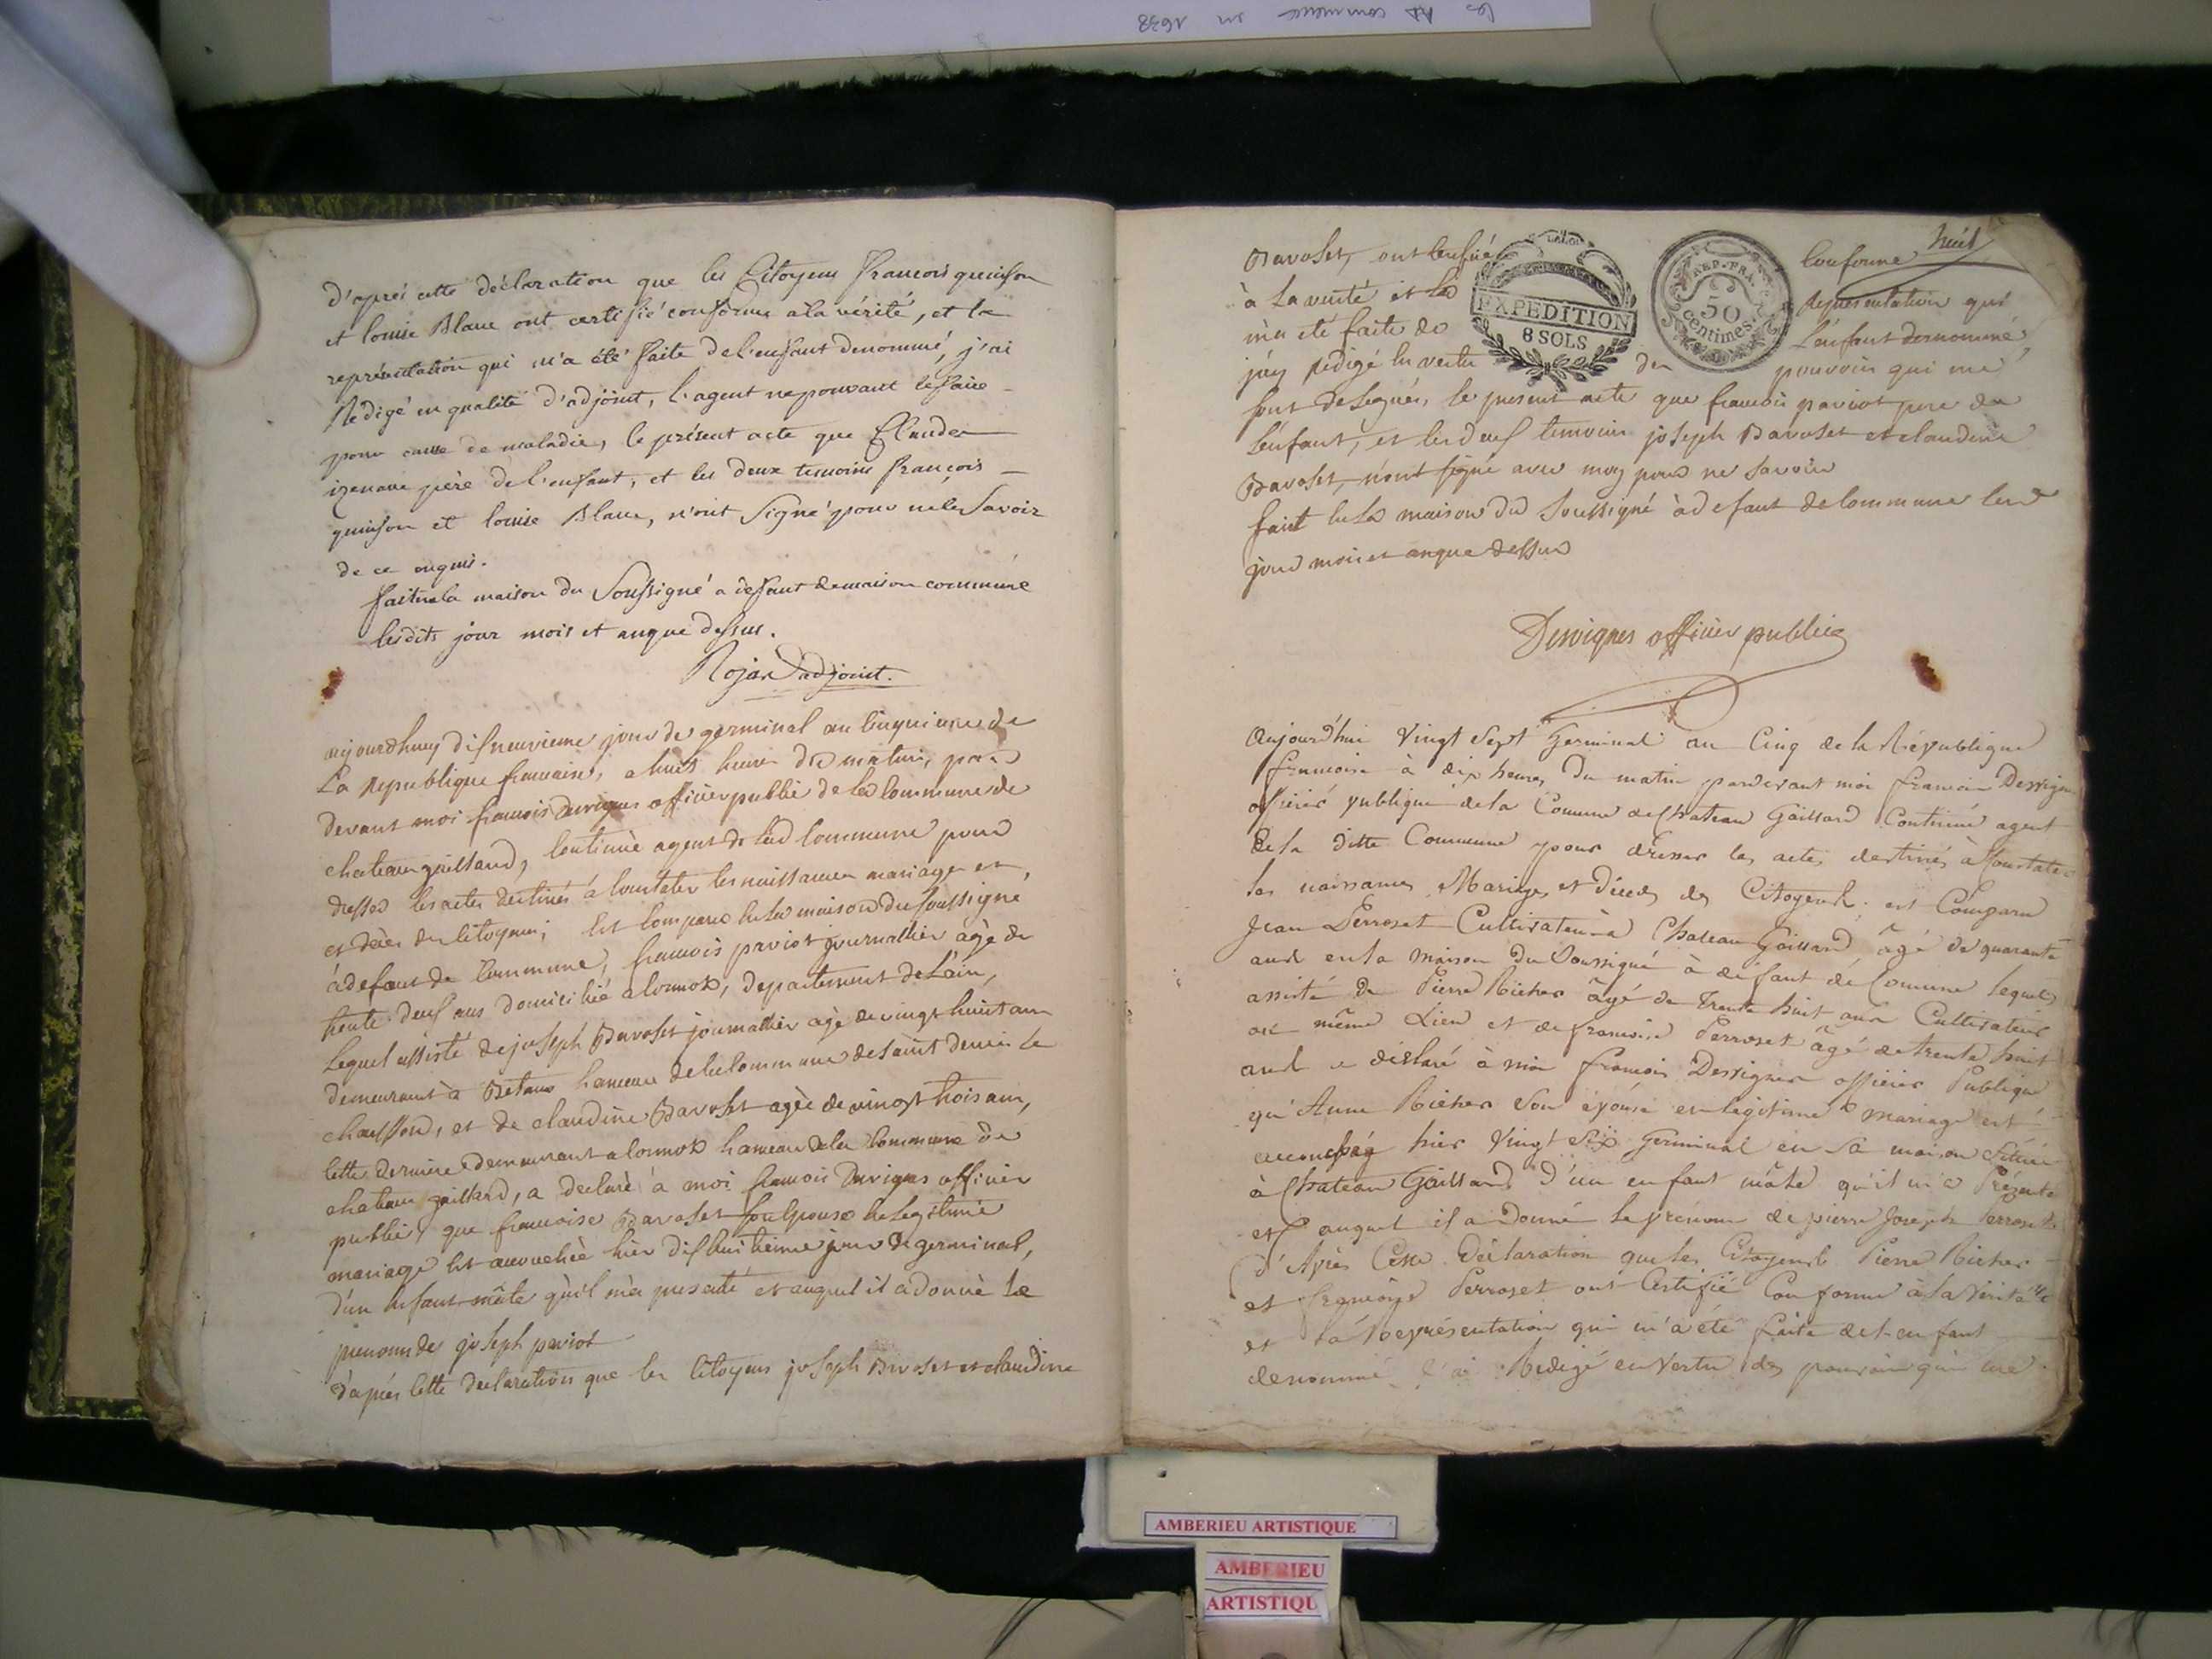 les commence en 1638
d'après cette déclaration que les Citoyens francois quinson
et louise Blanc ont certifié conforme a la vérité, et la
représentation qui m'a été faite de l'enfant denommé, j'ai
Redigé en qualité d'adjoint, l'agent ne pouvant le faire
pour cause de maladie, le présent acte que Claude
père de l'enfant, et les deux temoins françois
quinson et louise Blanc, n'ont Signé pour ne le Savoir
de ce enquis.
fait en la maison du Soussigné a deffaut de maison commune
lesdits jour mois et an que dessus.
Rojat adjoint.
aujourdhuy disneuvieme jour de germinal an cinquieme de
La Republique francaise, a huit heures du matin, par
devant moi francois Dervignes officier public de la Commune de
chateau gaillard, Continuè agent de lad Commune pour
dresser les actes destinés à Constater les naissances mariages et
et decès des Citoyens; est Comparu en la maison du soussigné
à defaut de Commune, francois paviot journallier âgè de
trente deux ans domicilié a Cormoz, departement de L'ain,
Lequel assisté de joseph Bavoset journallier agè de vingt huit ans
demeurant à Betans hameau de la Commune de saint denis le
chausson, et de claudine Bavoset agèe de vingt trois ans,
cette derniere demeurant a Cormoz hameau de la Commune de
chateau gaillard, a declarè à moi francois Dervignes officier
public, que francoise Bavoset son Epouse en Legitime
mariage est accouchèe hier dishuitieme jour de germinal,
d'un enfant mâle qu'il m'a presenté et auquel il a donnè le
prenom de joseph paviot
d'après Cette declaration que les Citoyens joseph Bavoset et claudine
huit
Bavoset, ont Certifié Conforme
à La verité et La Representation qui
m'a eté faite de L'enfant denommé,
EXPEDITION
8 SOLS
REP. FRA.
50
centimes.
j'ay redigé en vertu des pouvoirs qui me
sont delegués, le present acte que francois paviot pere de
L'enfant, et les deux temoins joseph Bavoset et claudine
Bavoset, n'ont signé avec moy pour ne savoir
fait en La maison du Soussigné à defaut de Commune les
jour mois et an que dessus
Dervignes officier public
Aujourd'hui Vingt Sept Germinal an Cinq de la République
francoise à dix heures du matin pardevant moi francois Dervignes
officier publique de la Comune de Chateau Gaillard Continué agent
de la ditte Commune pour dresser les actes destinés à Constater
les naissances Mariages et Décès des Citoyens. est Comparu
Jean Perroset Cultivateur à Chateau Gaillard, âgé de quarante
ans en la maison du Soussigné à deffaut de Comune lequel
assisté de Pierre Richer âgé de Trente huit ans Cultivateur
au même Lieu et de francoise Perroset âgé de trente huit
ans a déclaré à moi francois Dervignes officier Publique
qu'Anne Richer son épouse en legitime mariage est
accouchée hier Vingt six Germinal en sa maison située
à Chateau Gaillard d'un enfant mâle qu'il m'a Présenté
et auquel il a Donné le prénom de pierre Joseph Perroset
d'Après Cette Déclaration que les Citoyens Pierre Richer
et françoise Perroset ont Certifié Conforme à la Vérité
et la Représentation qui m'a été faite de l'enfant
denommé j'ai Redigé en Vertu des pouvoirs qui me
AMBERIEU ARTISTIQUE
AMBERIEU
ARTISTIQU